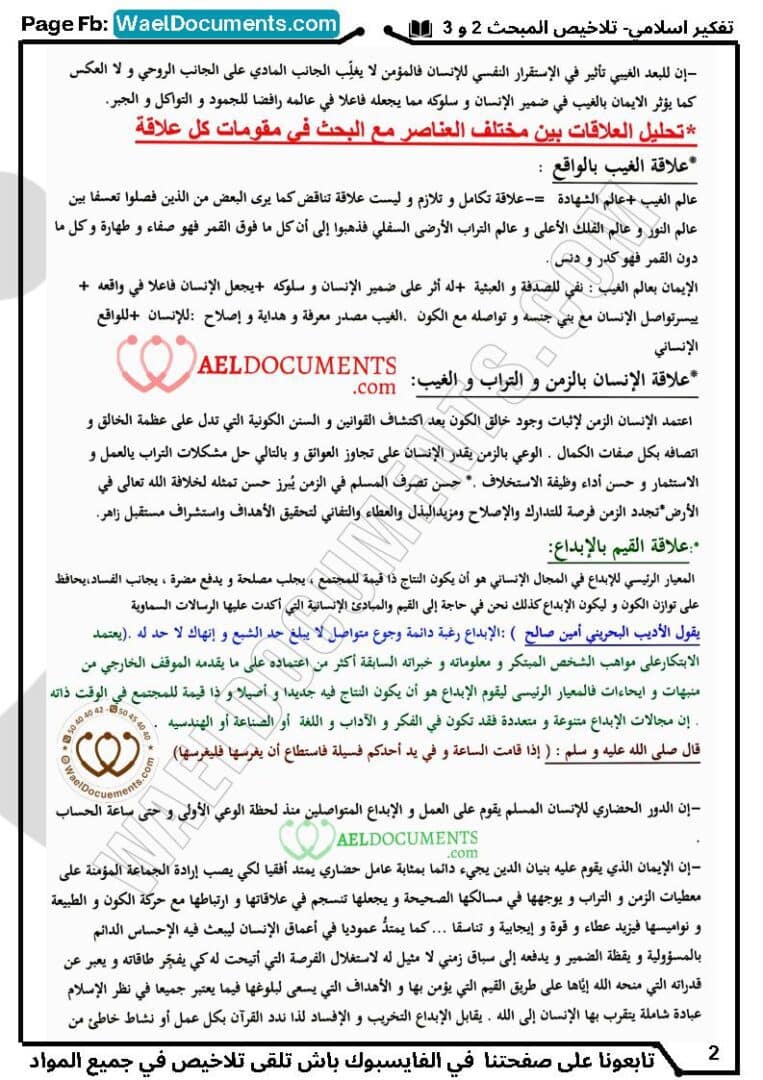 تفكير اسلامي- تلاخيص المبحث 2 و 3
Page Fb: WaelDocuments.com
–إن للبعد الغيبي تأثير في الإستقرار النفسي للإنسان فالمؤمن لا يغلّب الجانب المادي على الجانب الروحي و لا العكس
كما يؤثر الايمان بالغيب في ضمير الإنسان و سلوكه مما يجعله فاعلا في عالمه رافضا للجمود و التواكل و الجبر.
*تحليل العلاقات بين مختلف العناصر مع البحث في مقومات كل علاقة
*علاقة الغيب بالواقع :
عالم الغيب +عالم الشهادة =–علاقة تكامل و تلازم و ليست علاقة تناقض كما يرى البعض من الذين فصلوا تعسفا بين
عالم النور و عالم الفلك الأعلى و عالم التراب الأرضى السفلي فذهبوا إلى أن كل ما فوق القمر فهو صفاء و طهارة و كل ما
دون القمر فهو كدر و دنس .
الإيمان بعالم الغيب : نفي للصدفة و العبثية +له أثر على ضمير الإنسان و سلوكه +يجعل الإنسان فاعلا في واقعه +
ييسرتواصل الإنسان مع بني جنسه و تواصله مع الكون .الغيب مصدر معرفة و هداية و إصلاح :للإنسان +للواقع
الإنساني
AELDOCUMENTS
.com
*علاقة الإنسان بالزمن و التراب و الغيب:
اعتمد الإنسان الزمن لإثبات وجود خالق الكون بعد اكتشاف القوانين و السنن الكونية التي تدل على عظمة الخالق و
اتصافه بكل صفات الكمال . الوعي بالزمن يقدر الإنسان على تجاوز العوائق و بالتالي حل مشكلات التراب يالعمل و
الاستثمار و حسن أداء وظيفة الاستخلاف .* حسن تصرف المسلم في الزمن يُبرز حسن تمثله لخلافة الله تعالى في
الأرض*تجدد الزمن فرصة للتدارك والإصلاح ومزيدالبذل والعطاء والتفاني لتحقيق الأهداف واستشراف مستقبل زاهر.
*:علاقة القيم بالإبداع:
المعيار الرئيسي للإبداع في المجال الإنساني هو أن يكون النتاج ذا قيمة للمجتمع ، يجلب مصلحة و يدفع مضرة ، يجانب الفساد,يحافظ
على توازن الكون و ليكون الإبداع كذلك نحن في حاجة إلى القيم والمبادئ الإنسانية التي أكدت عليها الرسالات السماوية
يقول الأديب البحريني أمين صالح ) :الإبداع رغبة دائمة وجوع متواصل لا يبلغ حد الشبع و إنهاك لا حد له .(يعتمد
الابتكارعلى مواهب الشخص المبتكر و معلوماته و خبراته السابقة أكثر من اعتماده على ما يقدمه الموقف الخارجي من
منبهات و ايحاءات فالمعيار الرئيسى ليقوم الإبداع هو أن يكون النتاج فيه جديدا و أصيلا و ذا قيمة للمجتمع في الوقت ذاته
. إن مجالات الإبداع متنوعة و متعددة فقد تكون في الفكر و الآداب و اللغة أو الصناعة أو الهندسيه .
قال صلى الله عليه و سلم : ( إذا قامت الساعة و في يد أحدكم فسيلة فاستطاع أن يغرسها فليغرسها)
50 40 40 42 - 50 45 40 40
WaelDocuements.com
–إن الدور الحضاري للإنسان المسلم يقوم على العمل و الإبداع المتواصلين منذ لحظة الوعي الأولى و حتى ساعة الحساب
.
AELDOCUMENTS
.com
–إن الإيمان الذي يقوم عليه بنيان الدين يجيء دائما بمثابة عامل حضاري يمتد أفقيا لكي يصب إرادة الجماعة المؤمنة على
معطيات الزمن و التراب و يوجهها في مسالكها الصحيحة و يجعلها تنسجم في علاقاتها و ارتباطها مع حركة الكون و الطبيعة
و نواميسها فيزيد عطاء و قوة و إيجابية و تناسقا ...كما يمتدُّ عموديا في أعماق الإنسان ليبعث فيه الإحساس الدائم
بالمسؤولية و يقظة الضمير و يدفعه إلى سباق زمني لا مثيل له لاستغلال الفرصة التي أتيحت له كي يفجّر طاقاته و يعبر عن
قدراته التي منحه الله إيّاها على طريق القيم التي يؤمن بها و الأهداف التي يسعى لبلوغها فيما يعتبر جميعا في نظر الإسلام
عبادة شاملة يتقرب بها الإنسان إلى الله . يقابل الإبداع التخريب و الإفساد لذا ندد القرآن بكل عمل أو نشاط خاطئ من
WAELDOCUMENTS.COM
2
تابعونا على صفحتنا في الفايسبوك باش تلقى تلاخيص في جميع المواد